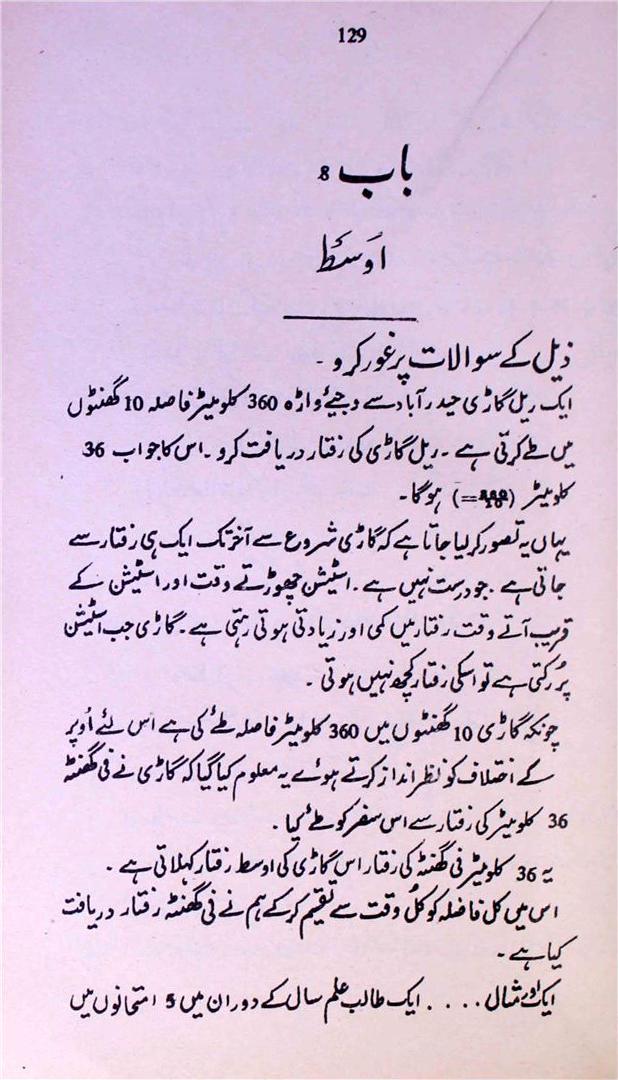 129
باب 8
اَوسَط
ذیل کے سوالات پر غور کرو۔
ایک ریل گاڑی حیدرآباد سے وجیے واڑہ 360 کلومیٹر فاصلہ 10 گھنٹوں
میں طے کرتی ہے۔ ریل گاڑی کی رفتار دریافت کرو۔ اس کا جواب 36
کلومیٹر (=360/10) ہوگا۔
یہاں یہ تصور کرلیا جاتا ہے کہ گاڑی شروع سے آخر تک ایک ہی رفتار سے
جاتی ہے۔ جو درست نہیں ہے۔ اسٹیشن چھوڑتے وقت اور اسٹیشن کے
قریب آتے وقت رفتار میں کمی اور زیادتی ہوتی رہتی ہے۔ گاڑی جب اسٹیشن
پر رُکتی ہے تو اسکی رفتار کچھ نہیں ہوتی۔
چونکہ گاڑی 10 گھنٹوں میں 360 کلومیٹر فاصلہ طے کی ہے اس لئے اُوپر
کے اختلاف کو نظر انداز کرتے ہوے یہ معلوم کیا گیا کہ گاڑی نے فی گھنٹہ
36 کلومیٹر کی رفتار سے اس سفر کو طے کیا۔
یہ 36 کلومیٹر فی گھنٹہ کی رفتار اس گاڑی کی اوسط رفتار کہلاتی ہے۔
اس میں کل فاصلہ کو کُل وقت سے تقیم کرکے ہم نے فی گھنٹہ رفتار دریافت
کیا ہے۔
ایک اور مثال .... ایک طالب علم سال کے دوران میں 5 امتحانوں میں